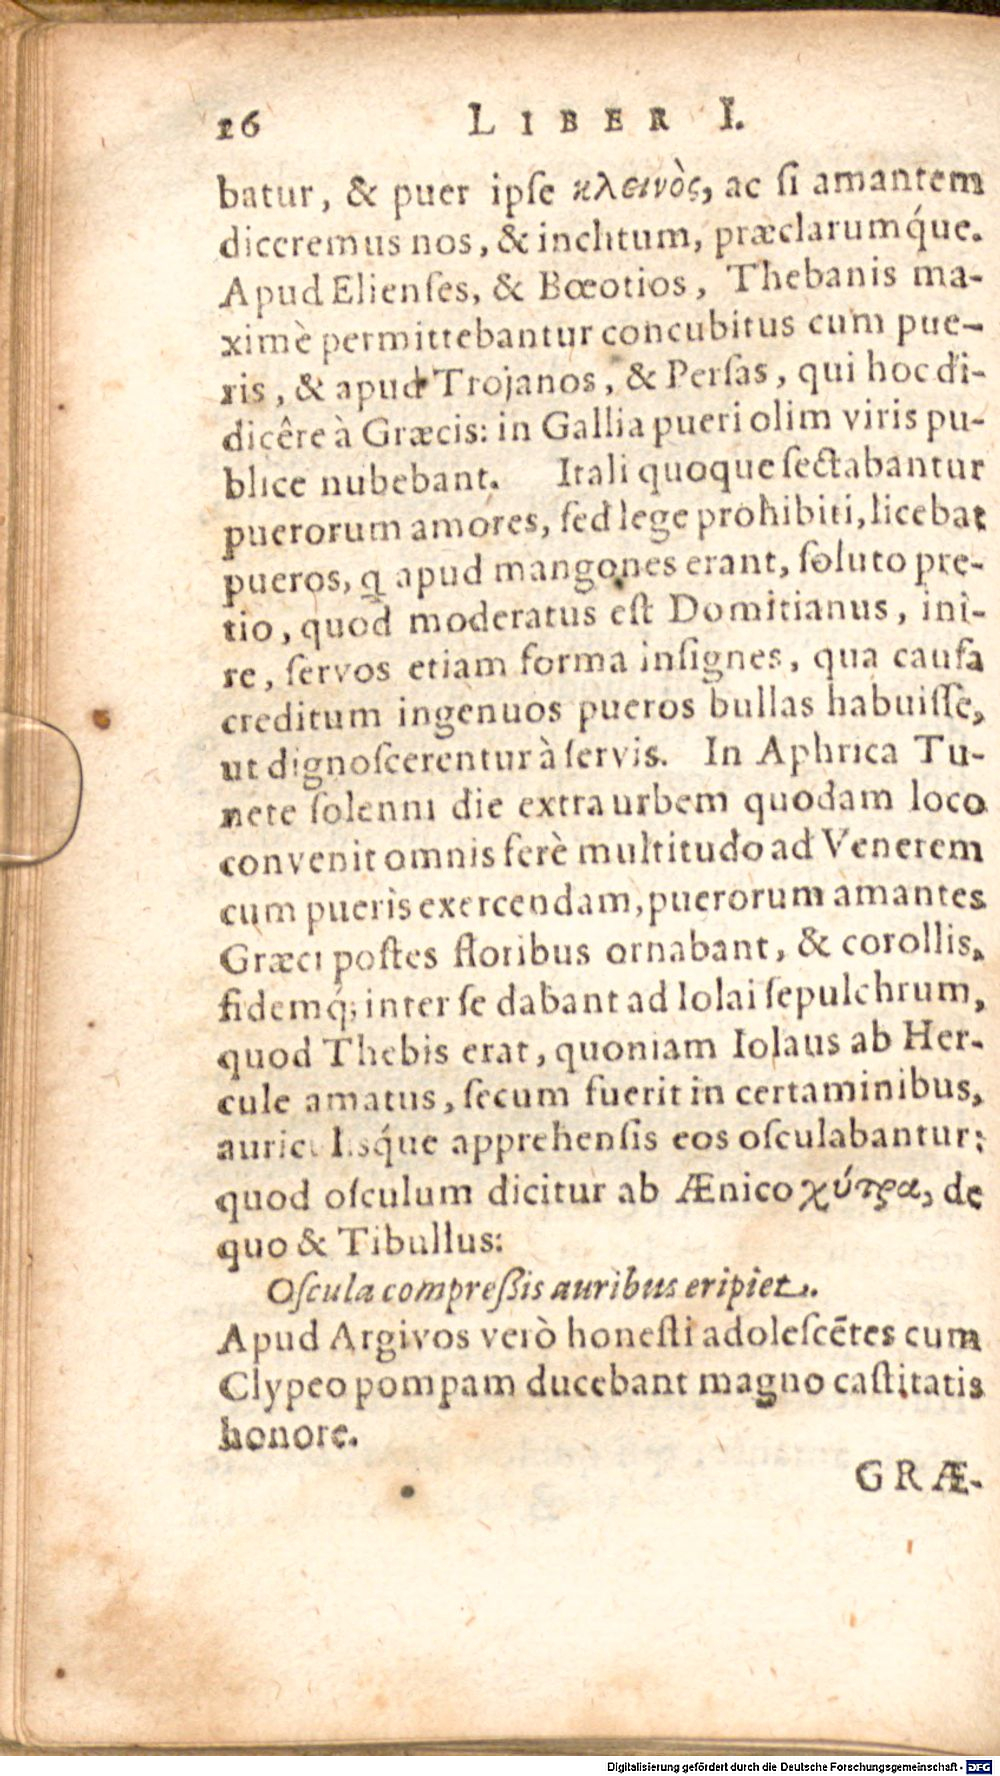 16 LIBER I.
batur, & puer ipſe κλεινὸς, ac ſi amantem
diceremus nos, & inclitum, præclarumq́ue.
Apud Elienſes, & Bœotios, Thebanis ma-
ximè permittebantur concubitus cum pue-
ris, & apud Trojanos, & Perſas, qui hoc di-
dicêre à Græcis: in Gallia pueri olim viris pu-
blice nubebant. Itali quoque ſectabantur
puerorum amores, ſed lege prohibiti, licebat
pueros, q apud mangones erant, ſoluto pre-
tio, quod moderatus eſt Domitianus, ini-
re, ſervos etiam forma inſignes, qua cauſa
creditum ingenuos pueros bullas habuiſſe,
ut dignoſcerentur à ſervis. In Aphrica Tu-
nete ſolenni die extra urbem quodam loco
convenit omnis ferè multitudo ad Venerem
cum pueris exercendam, puerorum amantes
Græci poſtes floribus ornabant, & corollis,
fidemq́; inter ſe dabant ad Iolai ſepulchrum,
quod Thebis erat, quoniam Iolaus ab Her-
cule amatus, ſecum fuerit in certaminibus,
auriculisq́ue apprehenſis eos oſculabantur:
quod oſculum dicitur ab Ænico χύτρα, de
quo & Tibullus:
Oſcula compreßis auribus eripiet.
Apud Argivos verò honeſti adoleſcẽtes cum
Clypeo pompam ducebant magno caſtitatis
honore.
GRÆ-
Digitalisierung gefördert durch die Deutsche Forschungsgemeinschaft - DFG